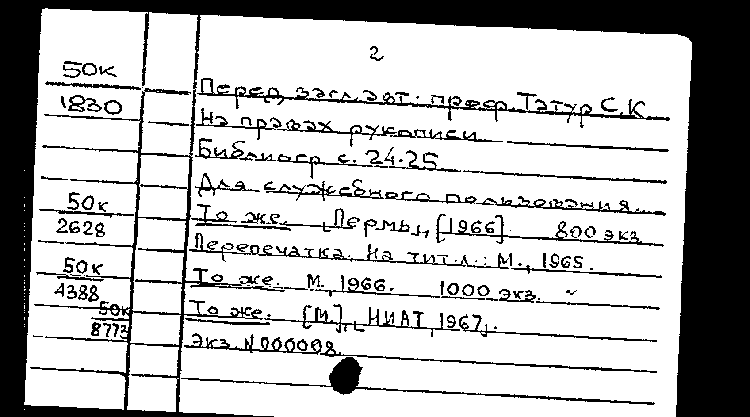 2
50к
Перед. загл. авт: проф. Татур С.К
1830
На правах рукописи
Библиогр с. 24-25
Для служебного пользования.
50к
То же. [Пермь], [1966] 800 экз
2628
Перепечатка. На тит.л.: М., 1965.
50к
То же. М, 1966. 1000 экз.
4388
50к
То же. [М.], [НИАТ, 1967].
8773
Экз N 000008.